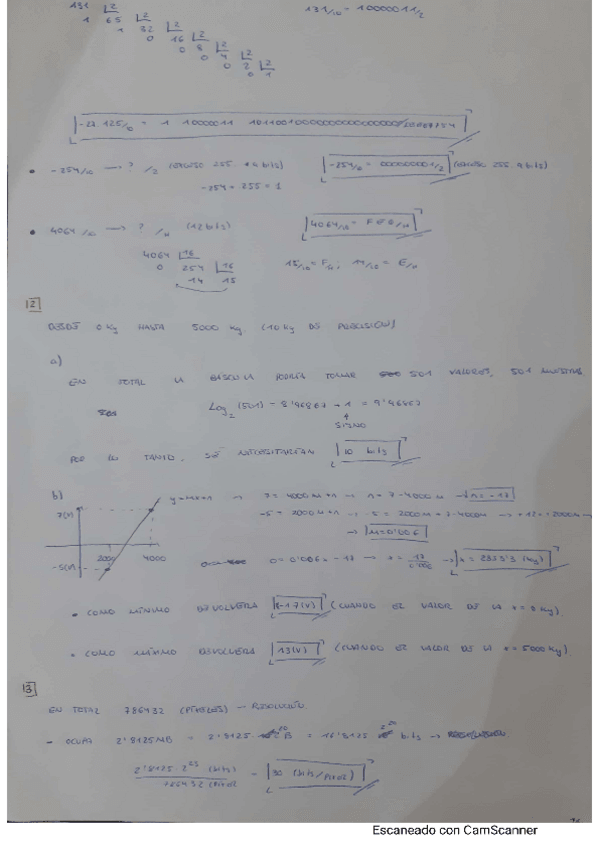 131 |2
1 65 |2
1 32 |2
0 16 |2
0 8 |2
0 4 |2
0 2 |2
0 1
131/10 = 10000011/2
1 10000011
• -254/10 → ? /2 (exceso 255. 9 bits)
-254 + 255 = 1
-254/10 = 000000001/2 (exceso 255. 9 bits)
• 4064/10 → ? /H (12 bits)
4064/10 = FE0/H
4064 |16
0 254 |16
14 15
15/10 = F/H; 14/10 = E/H
2
DESDE 0 Kg HASTA 5000 Kg. (10 Kg DE PRECISIÓN)
a)
EN TOTAL LA BÁSCULA PODRÍA TOMAR 501 VALORES, 501 MUESTRAS
Log2 (501) = 8'96867 + 1 = 9'96867
SIGNO
POR LO TANTO, SE NECESITARÍAN 10 bits
b)
7(V)
-5(V)
2000 4000
y = mx + n → 7 = 4000m + n → n = 7 - 4000m → n = -17
-5 = 2000m + n → -5 = 2000m + 7 - 4000m →
→ m = 0'006
→ x = 2833'3 (kg)
• COMO MÍNIMO DEVOLVERÁ -17(V) (CUANDO EL VALOR DE LA x = 0 Kg)
• COMO MÁXIMO DEVOLVERÁ 13(V) (CUANDO EL VALOR DE LA x = 5000 Kg).
3
EN TOTAL 786432 (PIXELES) → RESOLUCIÓN
- OCUPA 2'8125 MB =
2'8125 · 2^23 (bits)
786432 (Pixel
= 30 (bits/pixel)
Escaneado con CamScanner